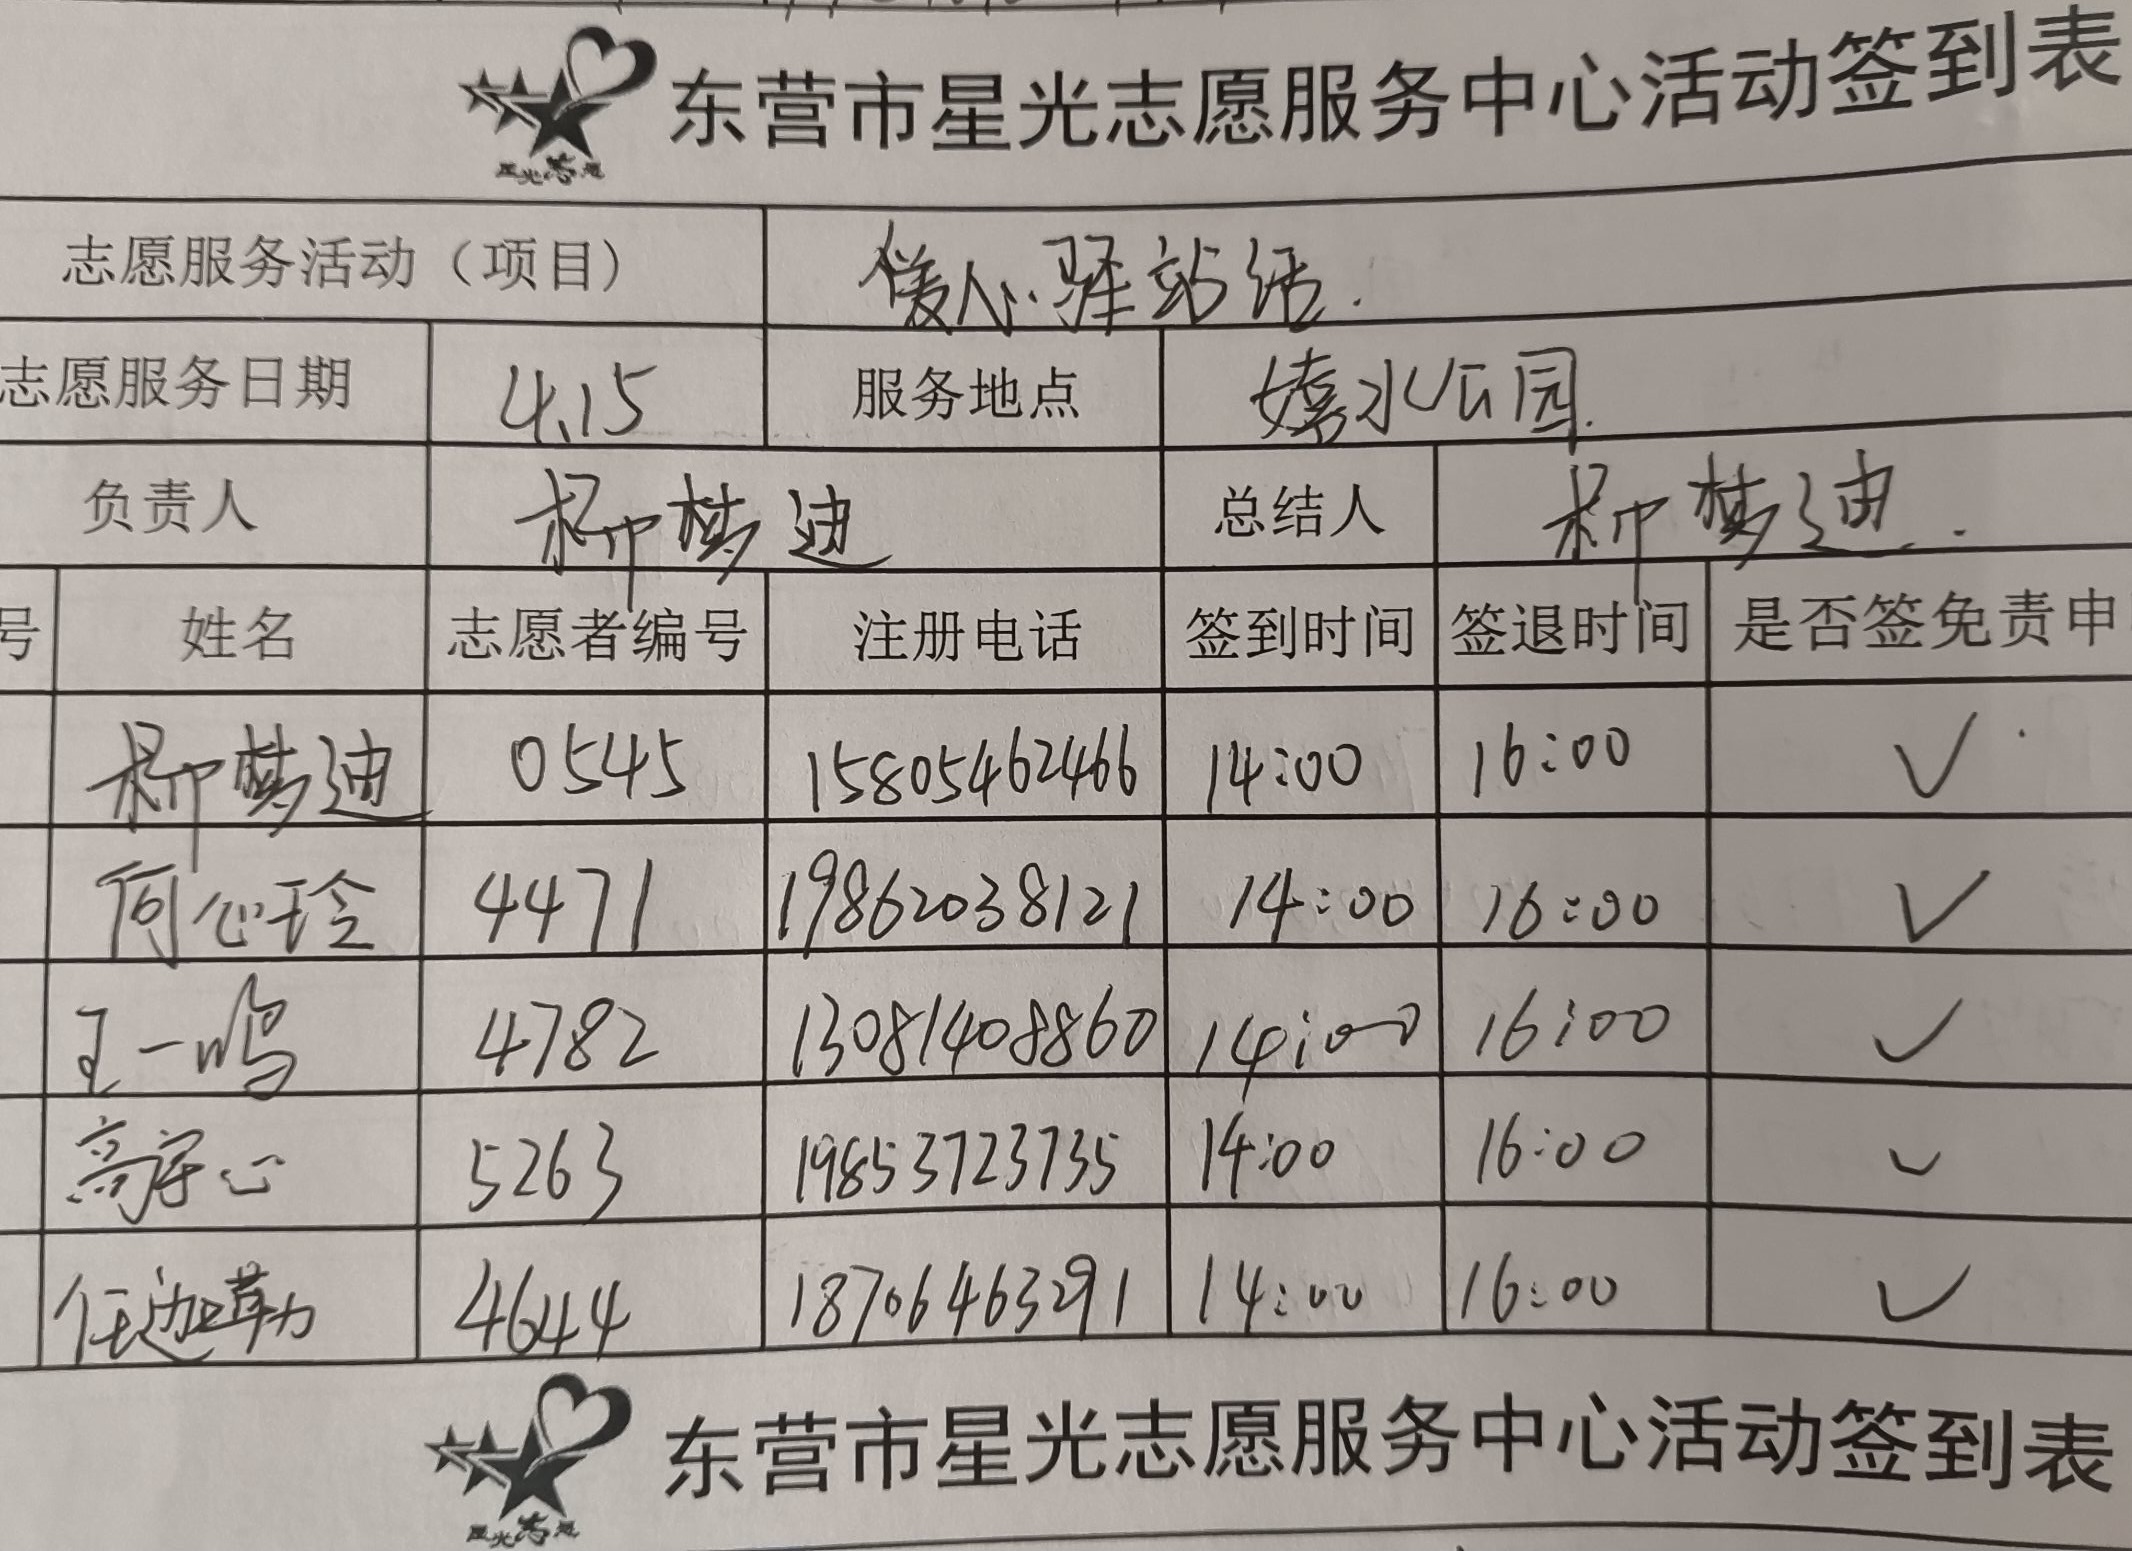 东营市星光志愿服务中心活动签到表
星光志愿
志愿服务活动（项目） 暖心驿站活.
志愿服务日期 4.15 服务地点 嬉水公园.
负责人 柳梦迪 总结人 柳梦迪.
号 姓名 志愿者编号 注册电话 签到时间 签退时间 是否签免责申
柳梦迪 0545 15805462466 14:00 16:00 ✓
何心玲 4471 19862038121 14:00 16:00 ✓
王一鸣 4782 13081408860 14:00 16:00 ✓
高守心 5263 19853723735 14:00 16:00 ✓
任 4644 18706463291 14:00 16:00 ✓
东营市星光志愿服务中心活动签到表
星光志愿